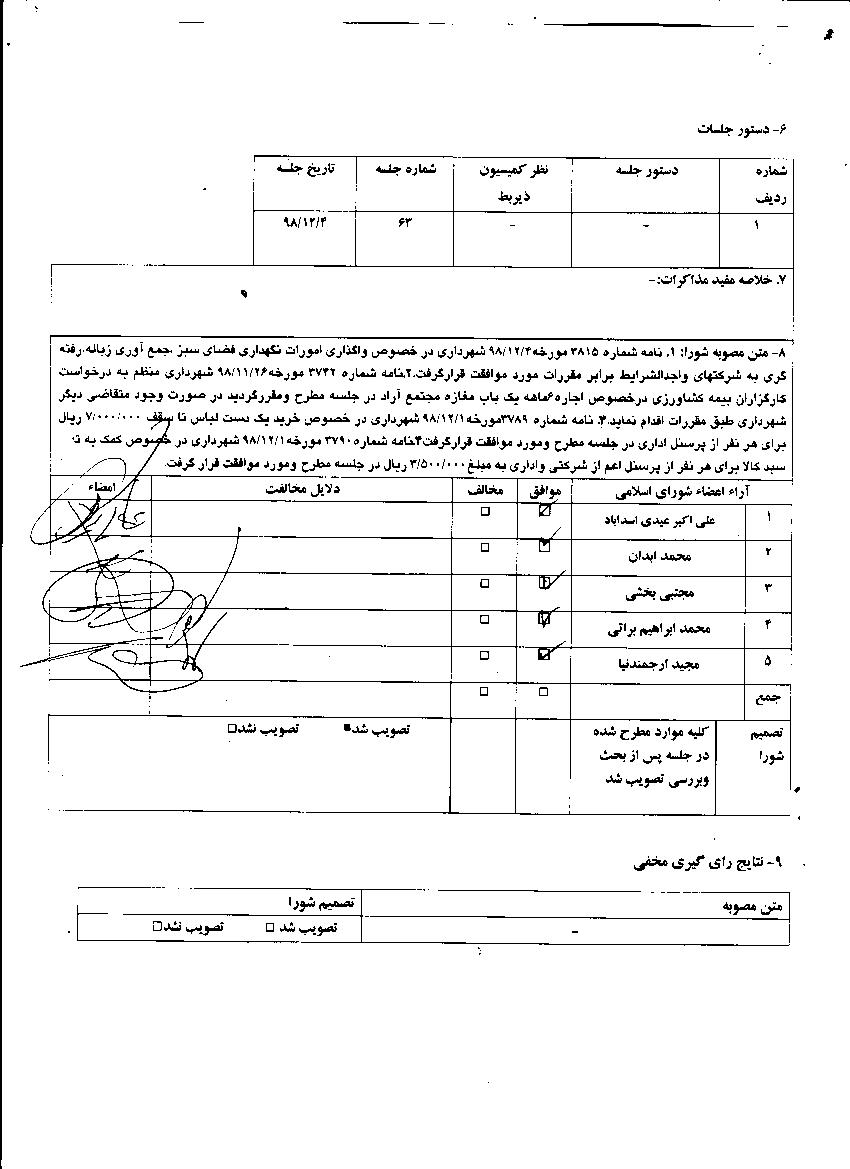 ۶- دستور جلسات
شماره ردیف
دستور جلسه
نظر کمیسیون ذیربط
شماره جلسه
تاریخ جلسه
۱
-
-
۶۳
۹۸/۱۲/۴
۷. خلاصه مفید مذاکرات:-
۸- متن مصوبه شورا: ۱. نامه شماره ۳۸۱۵ مورخه ۹۸/۱۲/۴ شهرداری در خصوص واگذاری امورات نگهداری فضای سبز ،جمع آوری زباله،رفته
گری به شرکتهای واجدالشرایط برابر مقررات مورد موافقت قرارگرفت.۲.نامه شماره ۳۷۴۲ مورخه ۹۸/۱۱/۲۶ شهرداری منظم به درخواست
کارگزاران بیمه کشاورزی درخصوص اجاره ۶ماهه یک باب مغازه مجتمع آراد در جلسه مطرح ومقررگردید در صورت وجود متقاضی دیگر
شهرداری طبق مقررات اقدام نماید.۳. نامه شماره ۳۷۸۹مورخه ۹۸/۱۲/۱ شهرداری در خصوص خرید یک دست لباس تا سقف ۷/۰۰۰/۰۰۰ ریال
برای هر نفر از پرسنل اداری در جلسه مطرح ومورد موافقت قرارگرفت۴.نامه شماره ۳۷۹۰ مورخه ۹۸/۱۲/۱ شهرداری در خصوص کمک به
سبد کالا برای هر نفر از پرسنل اعم از شرکتی واداری به مبلغ ۳/۵۰۰/۰۰۰ ریال در جلسه مطرح ومورد موافقت قرار گرفت.
آراء اعضاء شورای اسلامی
موافق
مخالف
دلایل مخالفت
امضاء
۱ علی اکبر عیدی اسدآباد
۲ محمد ابدان
۳ مجتبی بخشی
۴ محمد ابراهیم براتی
۵ مجید ارجمندنیا
جمع
تصمیم شورا
کلیه موارد مطرح شده
در جلسه پس از بحث
وبررسی تصویب شد
تصویب شد■ تصویب نشد□
۹- نتایج رای گیری مخفی
متن مصوبه
تصمیم شورا
-
تصویب شد □ تصویب نشد□